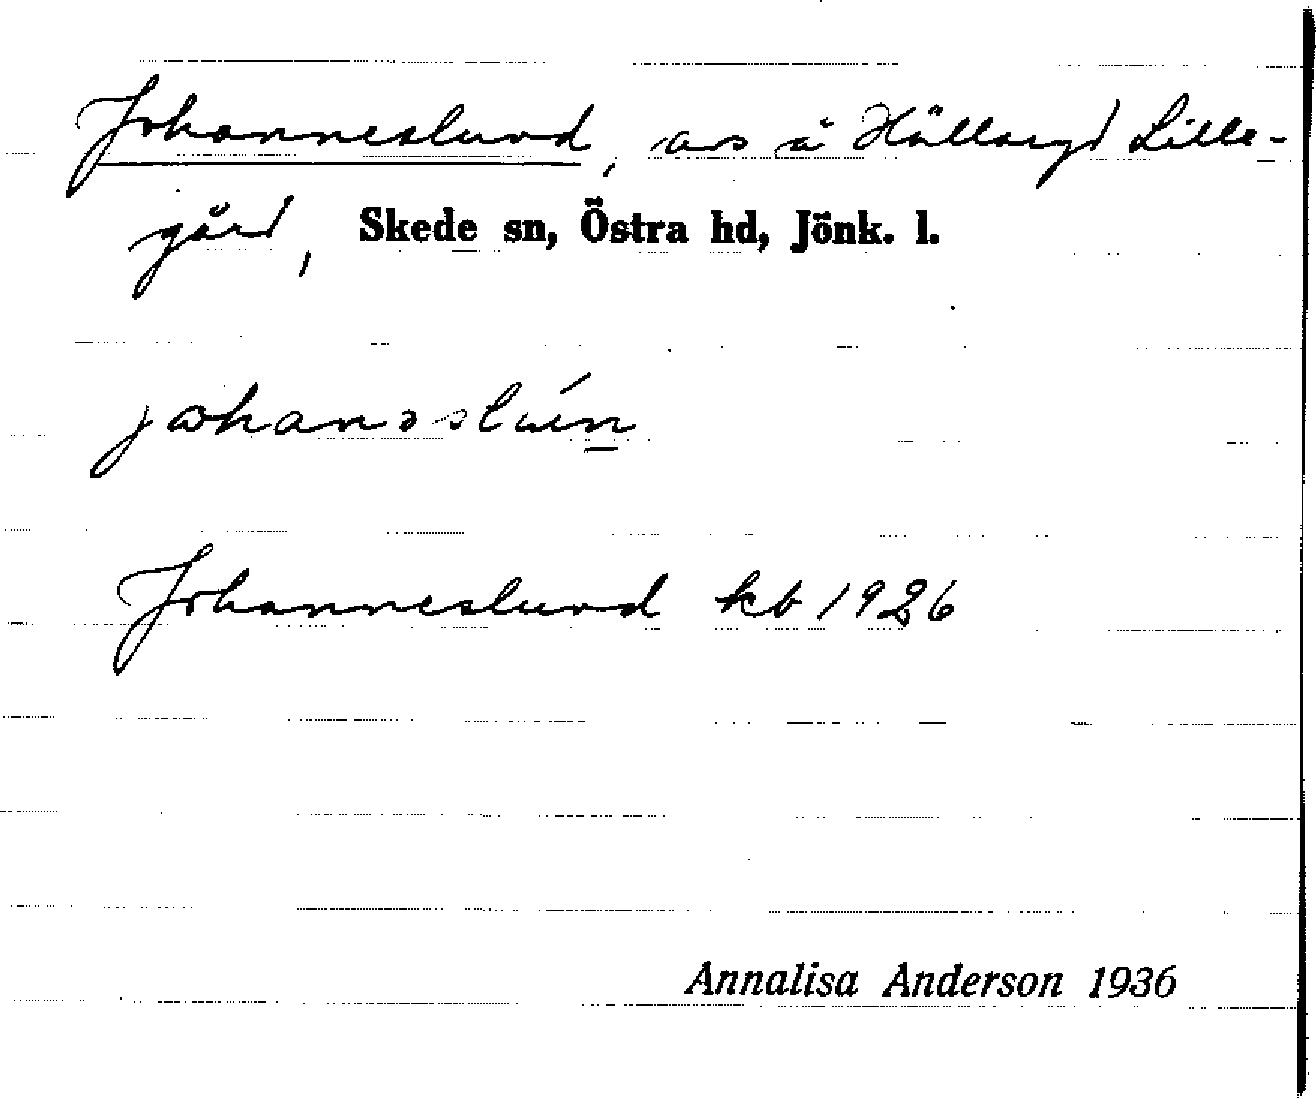 Johanneslund, avs å Hällaryd Lille-
gård, Skede sn, Östra hd, Jönk. l.
Johanneslund kb 1926
Annalisa Anderson 1936